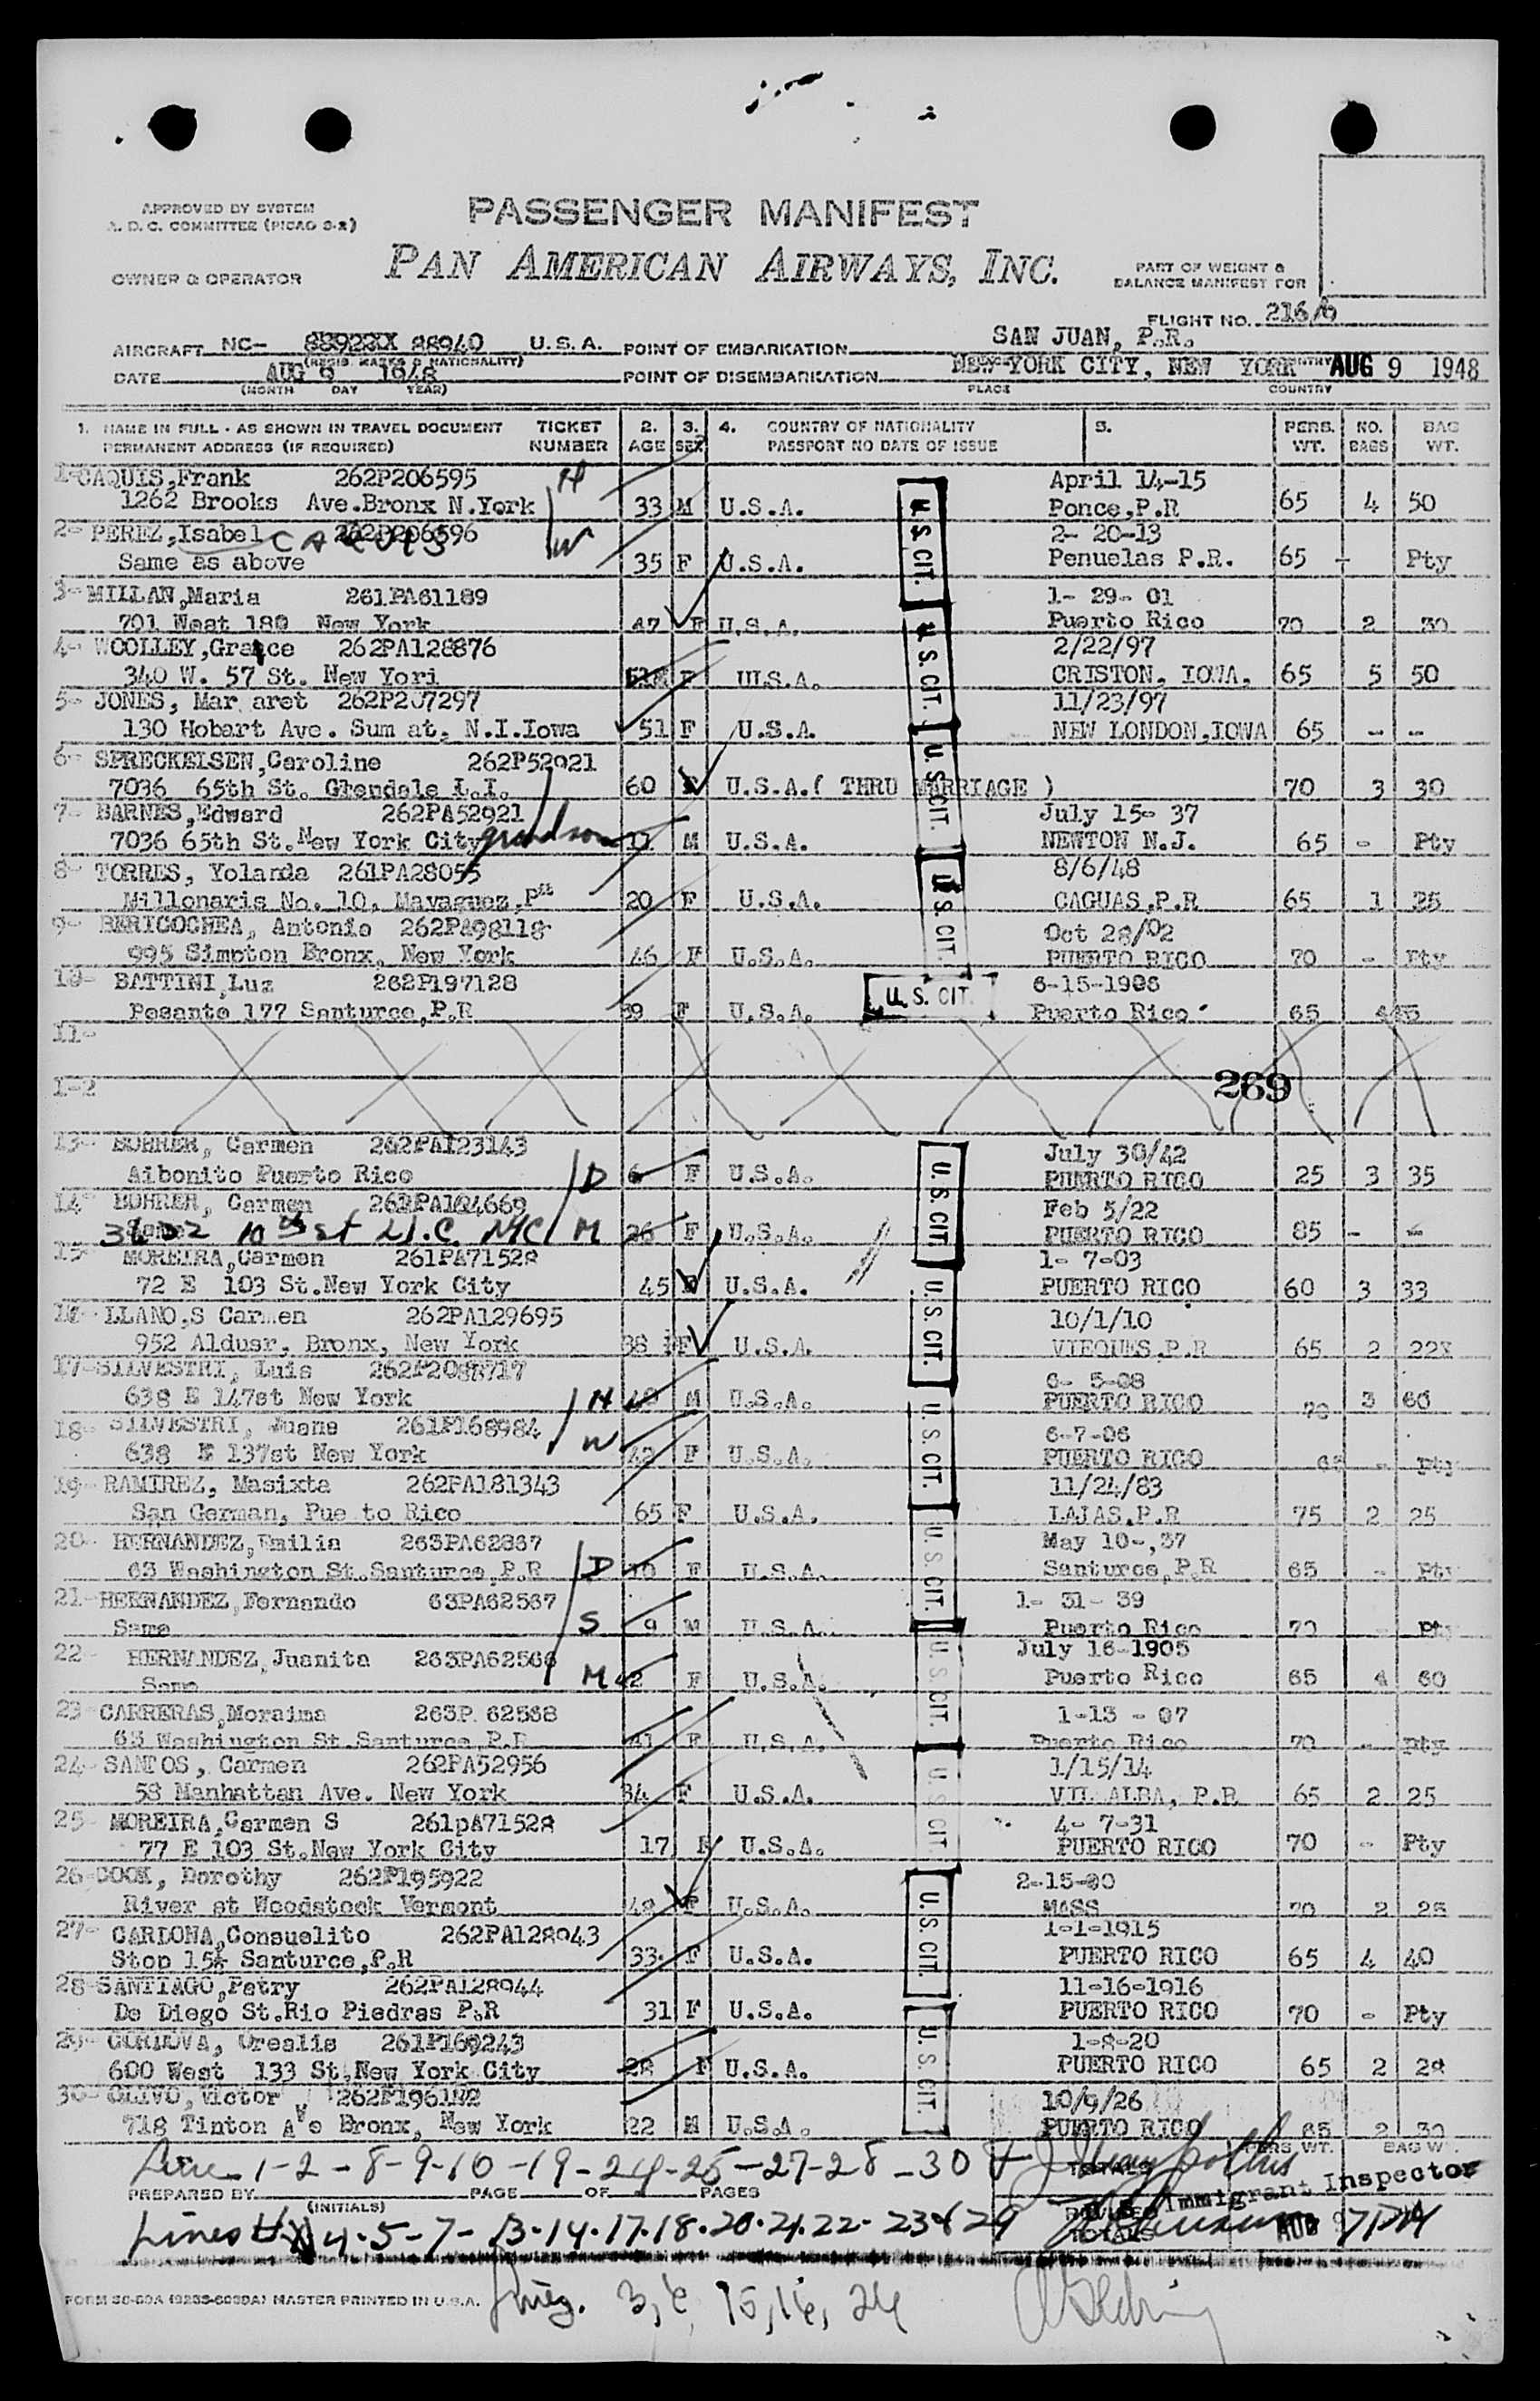 APPROVED BY SYSTEM
A. D. C. COMMITTEE (PICAO 9-2)
PASSENGER MANIFEST
OWNER & OPERATOR
PAN AMERICAN AIRWAYS, INC.
PART OF WEIGHT &
BALANCE MANIFEST FOR
FLIGHT NO. 216/9
AIRCRAFT NC- 88940 U.S.A. POINT OF EMBARKATION SAN JUAN, P.R.
(REGIS. MARKS & NATIONALITY)
DATE AUG 9 1948 POINT OF DISEMBARKATION NEW YORK CITY, NEW YORK AUG 9 1948
(MONTH DAY YEAR) PLACE COUNTRY
1. NAME IN FULL - AS SHOWN IN TRAVEL DOCUMENT TICKET 2. 3. 4. COUNTRY OF NATIONALITY 5. PERS. NO. BAG
PERMANENT ADDRESS (IF REQUIRED) NUMBER AGE SEX PASSPORT NO DATE OF ISSUE WT. BAGS WT.
1-CAQUIS,Frank 262P206595 H April 14-15
1262 Brooks Ave.Bronx N.York 33 M U.S.A. Ponce,P.R 65 4 50
2- PEREZ,Isabel CAQUIS 262P206596 W 2- 20-13
Same as above 35 F U.S.A. Penuelas P.R. 65 - Pty
3- MILLAN,Maria 261PA61189 1- 29- 01
701 West 180 New York 47 F U.S.A. Puerto Rico 70 2 30
4- WOOLLEY,Grace 262PA128876 2/22/97
340 W. 57 St. New Yori F U.S.A. CRISTON, IOWA. 65 5 50
5- JONES, Mar aret 262P207297 11/23/97
130 Hobart Ave. Sum at, N.I.Iowa 51 F U.S.A. NEW LONDON,IOWA 65 - -
6- SPRECKELSEN,Caroline 262P52921
7036 65th St. Glendale L.I. 60 F U.S.A.( THRU MARRIAGE ) 70 3 30
7- BARNES,Edward 262PA52921 July 15- 37
7036 65th St.New York City grandson 11 M U.S.A. NEWTON N.J. 65 - Pty
8- TORRES, Yolanda 261PA28055 8/6/48
Millonaris No. 10, Mayaguez,P 20 F U.S.A. CAGUAS,P.R 65 1 25
9- BERICOCHEA, Antonio 262PA98118 Oct 28/02
995 Simpton Bronx, New York 46 F U.S.A. PUERTO RICO 70 - Pty
10- BATTINI,Luz 262P197128 6-15-1908
Pesante 177 Santurce,P.R 39 F U.S.A. Puerto Rico 65
11-
1-2
269
13- BOHRER, Carmen 262PA123143 July 30/42
Aibonito Puerto Rico D 6 F U.S.A. PUERTO RICO 25 3 35
14- BOHRER, Carmen Feb 5/22
10th st L.I.C. NYC M 26 F U.S.A. PUERTO RICO 85 - -
15- MOREIRA,Carmen 261PA71528 1- 7-03
72 E 103 St.New York City 45 F U.S.A. PUERTO RICO 60 3 33
LLANO,S Carmen 262PA129695 10/1/10
952 Aldusr, Bronx, New York 38 F U.S.A. VIEQUES,P.R 65 2 22X
17-SILVESTRI, Luis 6- 5-08
638 E 147st New York H M U.S.A. PUERTO RICO 70 3 60
18- SILVESTRI, Juana 261P168984 6-7-06
638 E 137st New York W 42 F U.S.A. PUERTO RICO 65 - Pty
19- RAMIREZ, Masixta 262PA181343 11/24/83
San German, Pue to Rico 65 F U.S.A. LAJAS,P.R 75 2 25
20- HERNANDEZ,Emilia 263PA62867 May 10-,37
63 Washington St.Santurce,P.R D 10 F U.S.A. Santurce,P.R 65 - Pty
21-HERNANDEZ,Fernando 63PA62567 1- 31- 39
Same S 9 M U.S.A. Puerto Rico 70 - Pty
22- HERNANDEZ,Juanita 263PA62566 July 16-1905
Same M 42 F U.S.A. Puerto Rico 65 4 60
23- CARRERAS,Moraima 263P 62568 1-13 - 07
63 Washington St.Santurce,P.R 41 F U.S.A. Puerto Rico 70 - Pty
24-SANTOS, Carmen 262PA52956 1/15/14
58 Manhattan Ave. New York 34 F U.S.A. VIL ALBA, P.R 65 2 25
25- MOREIRA,Carmen S 261pA71528 4- 7-31
77 E 103 St.New York City 17 F U.S.A. PUERTO RICO 70 - Pty
26-COOK, Dorothy 262P195922 2-15-00
River st Woodstock Vermont 48 F U.S.A. MASS 70 2 25
27- CARDONA,Consuelito 262PA128943 1-1-1915
Stop 15½ Santurce,P.R 33 F U.S.A. PUERTO RICO 65 4 40
28-SANTIAGO,Petry 262PA128944 11-16-1916
De Diego St.Rio Piedras P.R 31 F U.S.A. PUERTO RICO 70 - Pty
29- CORDOVA, Orealis 261P169243 1-8-20
600 West 133 St.New York City 28 F U.S.A. PUERTO RICO 65 2 28
30- OLIVO,Victor 10/9/26
718 Tinton Ave Bronx, New York 22 M U.S.A. PUERTO RICO 65 2 30
U.S.CIT.
U.S.CIT.
U.S.CIT.
U.S.CIT.
U.S.CIT.
U.S.CIT.
U.S.CIT.
U.S.CIT.
U.S.CIT.
U.S.CIT.
U.S.CIT.
U.S.CIT.
U.S.CIT.
Line 1-2-8-9-10-19-24-25-27-28-30
PERS. WT. BAG WT.
TOTALS
PREPARED BY PAGE OF PAGES
(INITIALS)
Immigrant Inspector
Lines 4-5-7-13-14-17-18-20-21-22-23 & 29
TOTALS AUG
FORM MASTER PRINTED IN U.S.A.
3, 6, 15, 16, 26